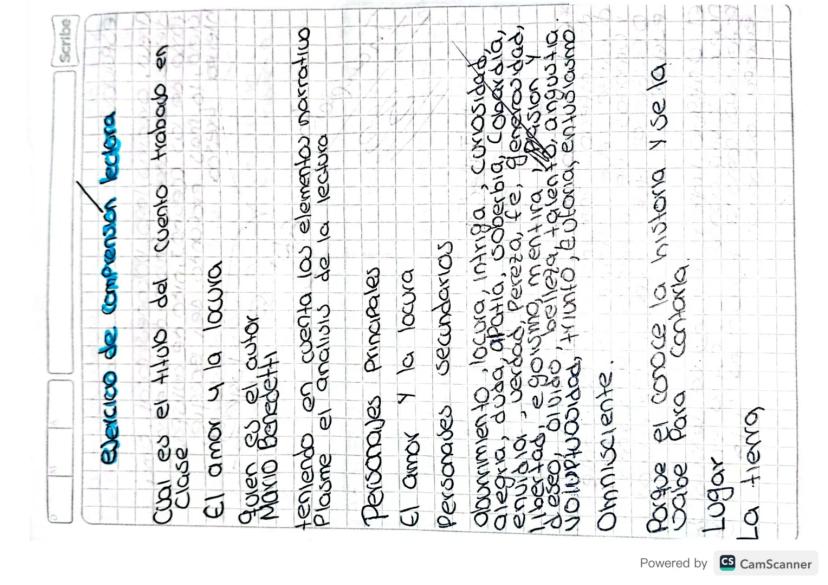 Scribe
ejercicio de comprensión lectora
Cual es el titulo del cuento trabado en
clase
El amor y la locura
quien es el autor
Mario Benedetti
teniendo en cuenta los elementos narrativo
Plasme el analisis de la lectura
Personajes Principales
El amor y la locura
Personajes secundarios
aburrimiento, locura, intriga, curiosidad,
alegria, duda, apatia, soberbia, cobardia,
envidia, verdad, Pereza, fe, generosidad,
libertad, egoismo, mentira, Pasion y
deseo, olvido, belleza, talento, angustia.
voluptuosidad, triunfo, Euforia, entusiasmo.
Omnisciente.
Porque el conoce la historia y se la
sabe Para contarla.
Lugar
La tierra,
Powered by CS CamScanner